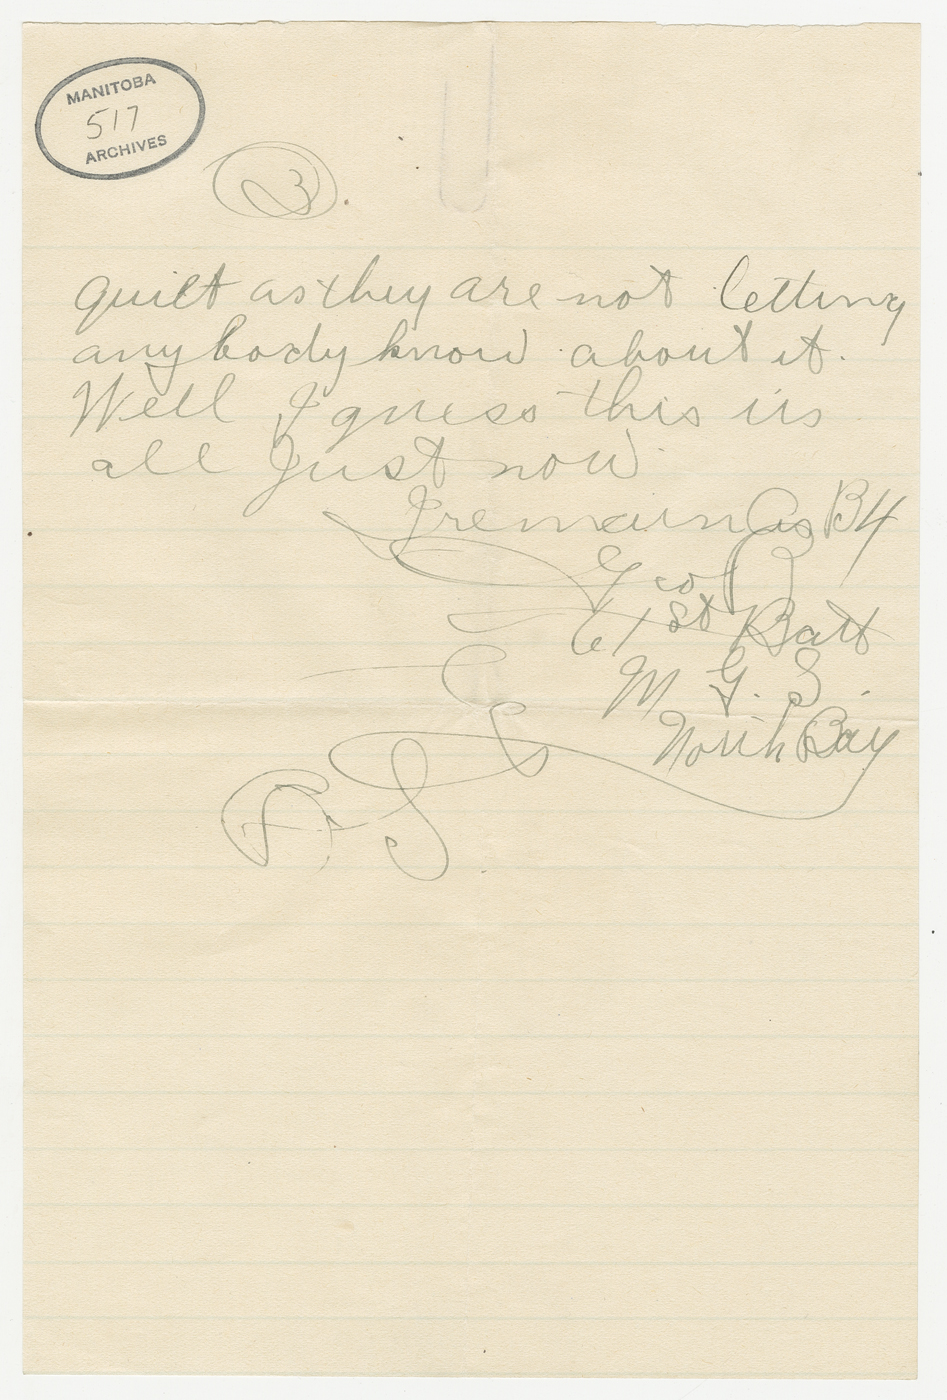 MANITOBA
517
ARCHIVES
3.
quilt as they are not letting
any body know about it.
Well I guess this is
all Just now
I remain As B4
Geo P
61st Batt
M G. S.
North Bay
P. S